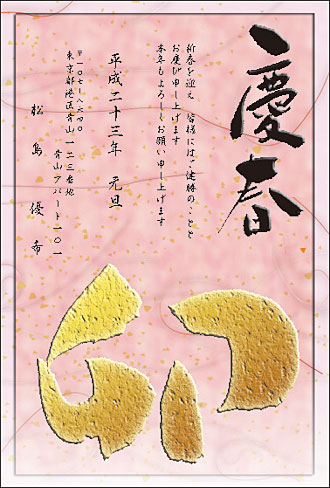 慶春
新春を迎え 皆様にはご健勝のことと
お慶び申し上げます
本年もよろしくお願い申し上げます
平成二十三年 元旦
〒一〇七-八六四〇
東京都港区青山一二三番地
青山アパート一〇一
松島 優希